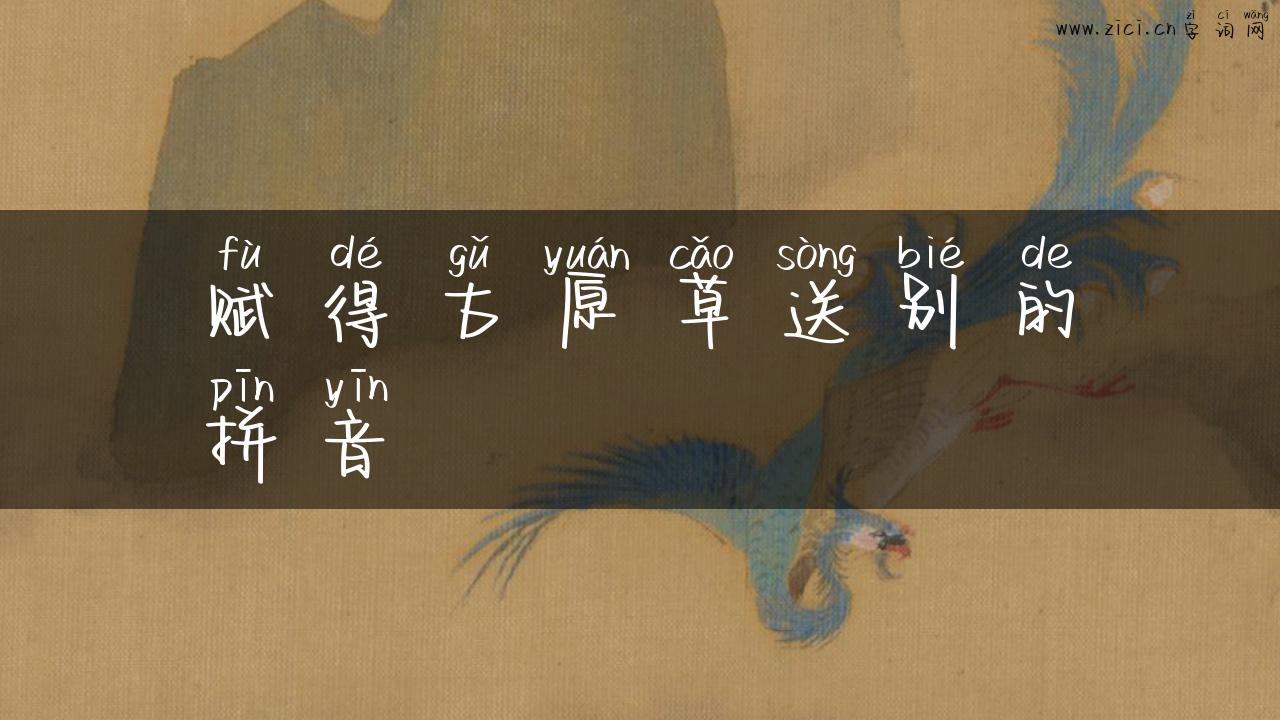 zì cí wǎng
www.zici.cn 字 词 网
fù dé gǔ yuán cǎo sòng bié de
赋 得 古 原 草 送 别 的
pīn yīn
拼 音